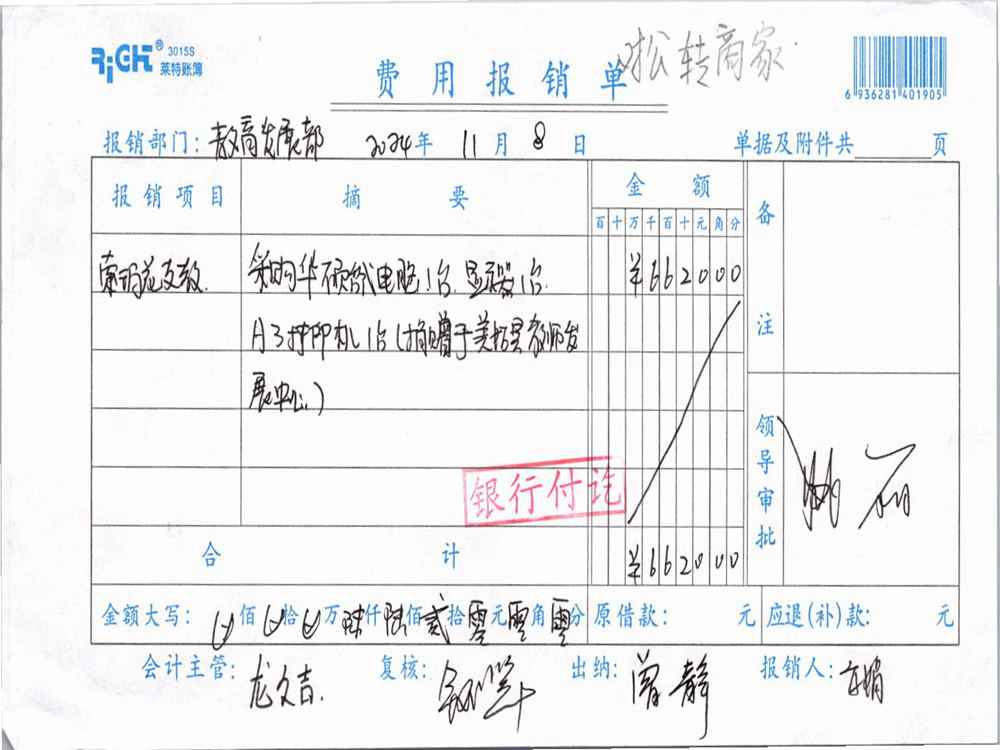 RiGHT® 3015S
莱特账簿
费用报销单
转商家
6 936281 401905
报销部门: 教育发展部 2024年 11月 8日 单据及附件共 页
报销项目 摘要 金额 备注
百 十 万 千 百 十 元 角 分
索玛花支教 采购华硕台式电脑1台.显示器1台. ¥662000
A3打印机1台(捐赠于美姑县教师发
展中心.)
银行付讫
领导审批
合计 ¥662000
金额大写: 佰 拾 万 陆仟 陆佰 贰拾 零元 零角 零分 原借款: 元 应退(补)款: 元
会计主管: 龙文吉. 复核: 出纳: 曾静 报销人: